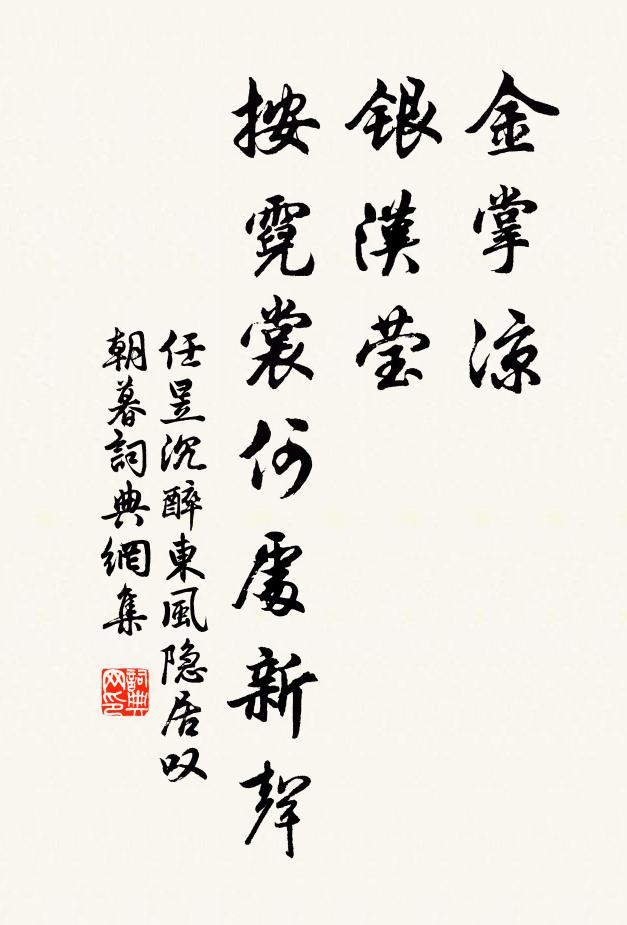 金掌涼
銀漢莹
按霓裳何處新聲
任昱沉醉東風隐居叹
朝暮詞典網集
詞典网印